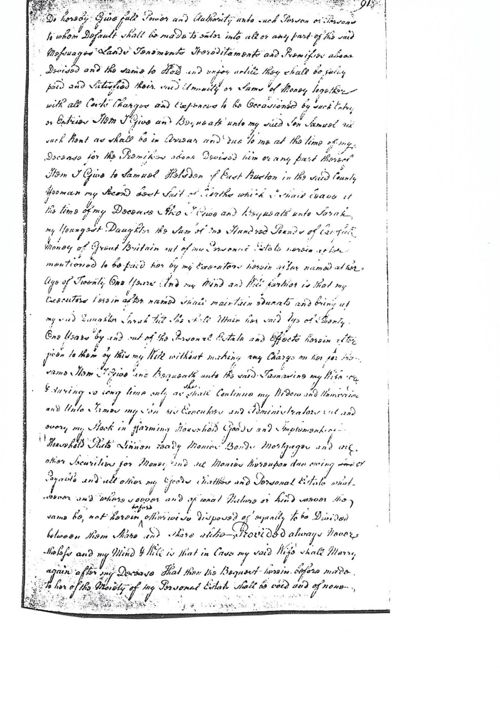 918
Do hereby Give full Power and Authority unto such Person or Persons
to whom Default shall be made to enter into all or any part of his said
Messuages Lands Tenements Hereditaments and Premises above
Devised and the same to Hold and enjoy until they shall be fully
paid and Satisfied their said Annuity or Sums of Money together
with all Costs Charges and Expences to be Occasioned by such Entry
or Entries Item I Give and Bequeath unto my said Son Samuel all
such Rent as shall be in Arrear and due to me at the time of my
Decease for the Premises above Devised him or any part thereof
Item I Give to Samuel of East Ruston in the said County
Yeoman my Second best Suit of Cloths which I shall leave at
the time of my Decease Also I Give and Bequeath unto Sarah
my Youngest Daughter the Sum of Hundred Pounds of Lawful
Money of Great Britain out of my Personal Estate herein after
mentioned to be paid her by my Executors herein after named at her
Age of Twenty One Years And my Mind and Will further is that my
Executors herein after named shall maintain educate and bring up
my said Daughter Sarah till She shall attain her said Age of Twenty
One Years by and out of the Personal Estate and Effects herein after
given to them by this my Will without making any Charge on her for the
same Item I Give and Bequeath unto the said my Wife
during so long time only as she shall Continue my Widow and Unmarried
and Unto James my Son my Executors and Administrators all and
every my Stock in Farming Household Goods and Implements
Household Plate Linnen ready Monies Bonds Mortgages and all
other Securities for Money and all Monies thereupon due owing and
Payable and all other my Goods Chattles and Personal Estate what
soever and wheresoever and of what Nature or kind soever the
same be, not herein before otherwise disposed of equally to be Divided
between them Share and Share alike Provided always Never
theless and my Mind & Will is that in Case my said Wife shall Marry
again after my Decease That then the Bequest herein before made
to her of the Moiety of my Personal Estate shall be void and of none